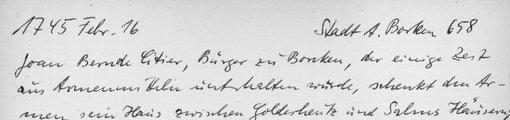 1745 Febr. 16 Stadt A. Borken 658
Joan Bernde Citier, Bürger zu Borken, der einige Zeit
aus Armenmitteln unterhalten wurde, schenkt den Ar-
men sein Haus zwischen und Salms Häusern